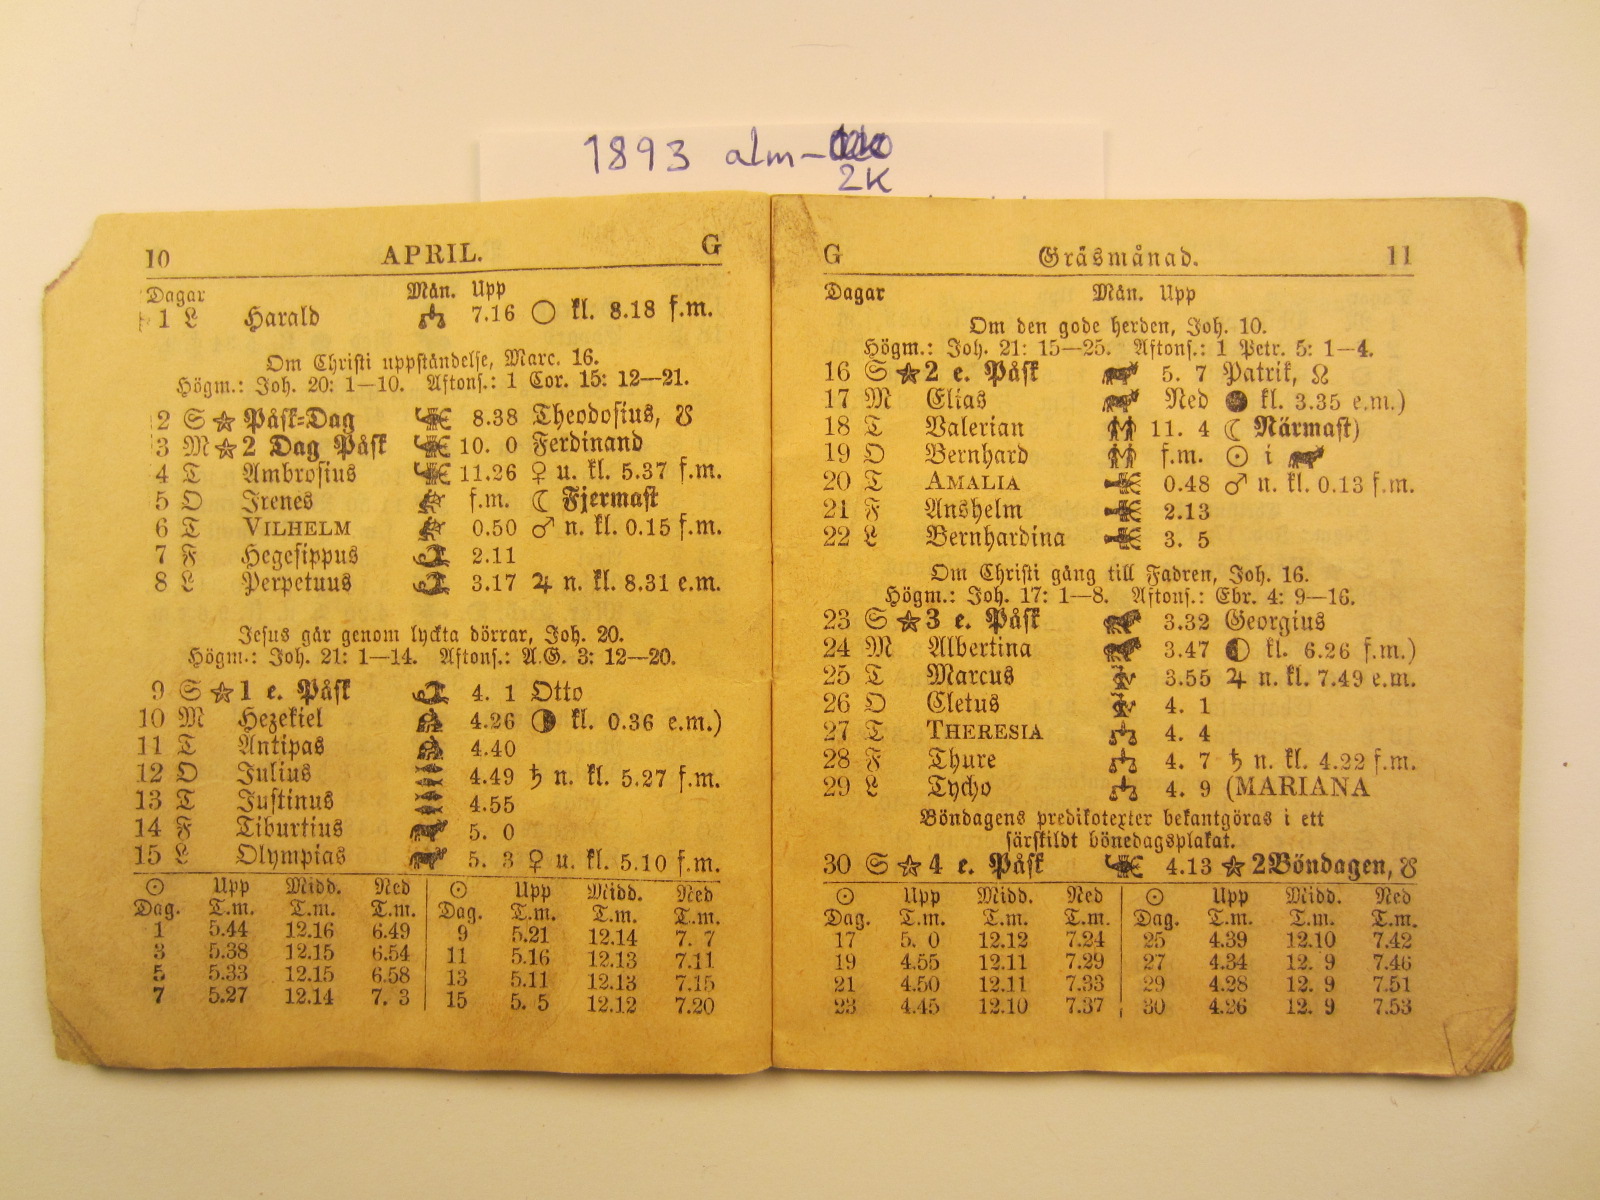 1893 alm-
2K
10 APRIL. G
Dagar Mån. Upp
1 L Harald 7.16 ○ kl. 8.18 f.m.
Om Christi uppståndelse, Marc. 16.
Högm.: Joh. 20: 1—10. Aftons.: 1 Cor. 15: 12—21.
2 S ★ Påsk-Dag 8.38 Theodosius, ☋
3 M ★ 2 Dag Påsk 10. 0 Ferdinand
4 T Ambrosius 11.26 ♀ u. kl. 5.37 f.m.
5 O Irenes f.m. ☾ Fjermast
6 T VILHELM 0.50 ♂ n. kl. 0.15 f.m.
7 F Hegesippus 2.11
8 L Perpetuus 3.17 ♃ n. kl. 8.31 e.m.
Jesus går genom lyckta dörrar, Joh. 20.
Högm.: Joh. 21: 1—14. Aftons.: A.G. 3: 12—20.
9 S ★ 1 e. Påsk 4. 1 Otto
10 M Hezekiel 4.26 ◑ kl. 0.36 e.m.)
11 T Antipas 4.40
12 O Julius 4.49 ♄ n. kl. 5.27 f.m.
13 T Justinus 4.55
14 F Tiburtius 5. 0
15 L Olympias 5. 3 ♀ u. kl. 5.10 f.m.
☉ Upp Midd. Ned ☉ Upp Midd. Ned
Dag. T.m. T.m. T.m. Dag. T.m. T.m. T.m.
1 5.44 12.16 6.49 9 5.21 12.14 7. 7
3 5.38 12.15 6.54 11 5.16 12.13 7.11
5 5.33 12.15 6.58 13 5.11 12.13 7.15
7 5.27 12.14 7. 3 15 5. 5 12.12 7.20
G Gräsmånad. 11
Dagar Mån. Upp
Om den gode herden, Joh. 10.
Högm.: Joh. 21: 15—25. Aftons.: 1 Petr. 5: 1—4.
16 S ★ 2 e. Påsk 5. 7 Patrik, ☊
17 M Elias Ned ● kl. 3.35 e.m.)
18 T Valerian 11. 4 ☾ Närmast)
19 O Bernhard f.m. ☉ i
20 T AMALIA 0.48 ♂ n. kl. 0.13 f.m.
21 F Anshelm 2.13
22 L Bernhardina 3. 5
Om Christi gång till Fadren, Joh. 16.
Högm.: Joh. 17: 1—8. Aftons.: Ebr. 4: 9—16.
23 S ★ 3 e. Påsk 3.32 Georgius
24 M Albertina 3.47 ◐ kl. 6.26 f.m.)
25 T Marcus 3.55 ♃ n. kl. 7.49 e.m.
26 O Cletus 4. 1
27 T THERESIA 4. 4
28 F Thure 4. 7 ♄ n. kl. 4.22 f.m.
29 L Tycho 4. 9 (MARIANA
Böndagens predikotexter bekantgöras i ett
särskildt bönedagsplakat.
30 S ★ 4 e. Påsk 4.13 ★ 2Böndagen, ☋
☉ Upp Midd. Ned ☉ Upp Midd. Ned
Dag. T.m. T.m. T.m. Dag. T.m. T.m. T.m.
17 5. 0 12.12 7.24 25 4.39 12.10 7.42
19 4.55 12.11 7.29 27 4.34 12. 9 7.46
21 4.50 12.11 7.33 29 4.28 12. 9 7.51
23 4.45 12.10 7.37 30 4.26 12. 9 7.53